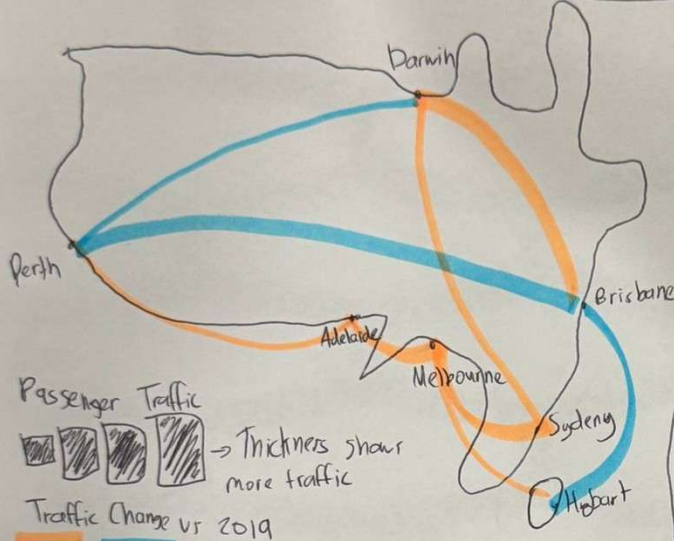 Darwin
Perth
Brisbane
Adelaide
Melbourne
Sydeny
Hobart
Passenger Traffic
→ Thickness shows
more traffic
Traffic Change vs 2019